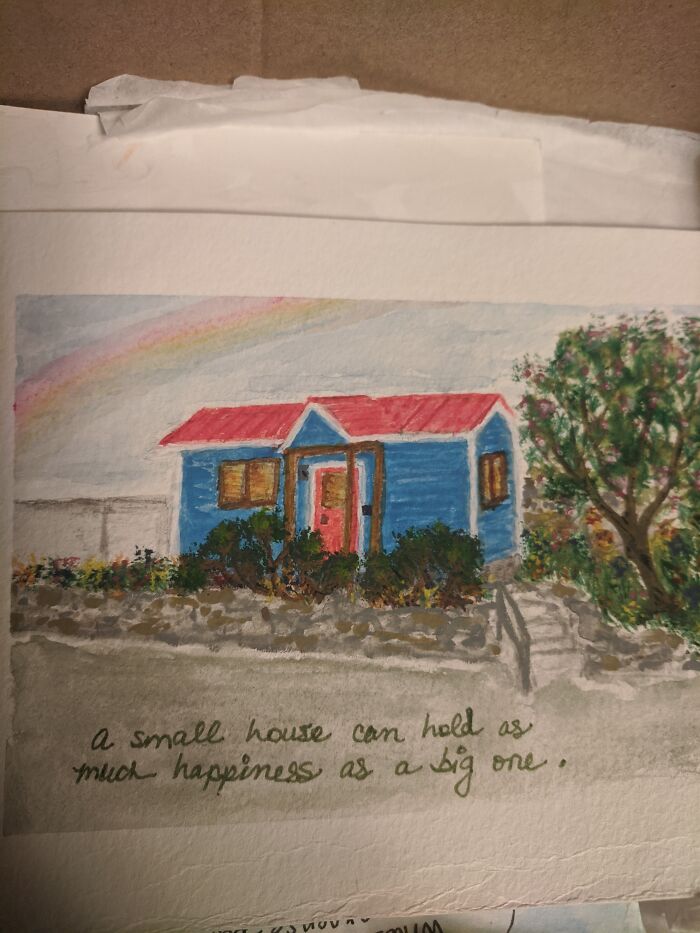 a small house can hold as
much happiness as a big one.